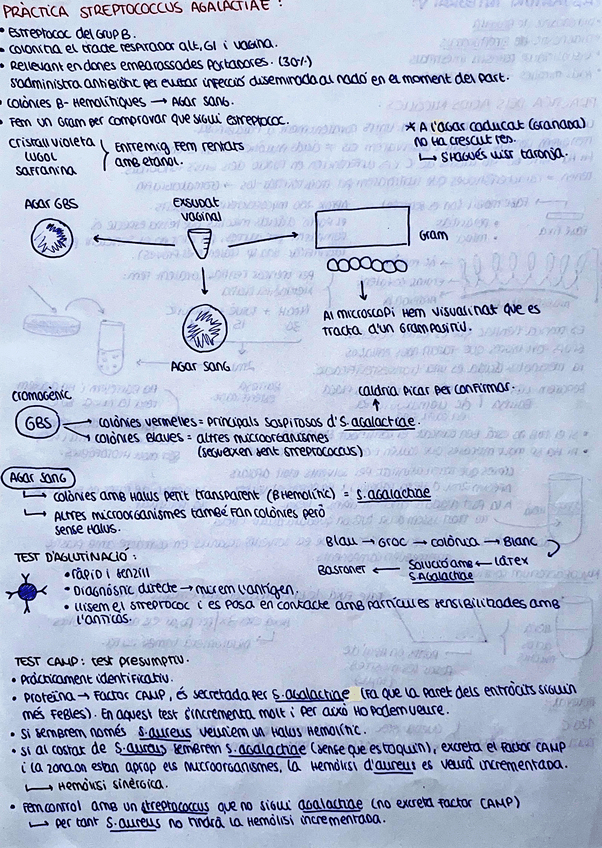 PRÀCTICA STREPTOCOCCUS AGALACTIAE:
• Estreptococ del grup B.
• colonitza el tracte respirador alt, GI i vagina.
• Rellevant en dones embarassades portadores. (30%)
S'administra antibiòtic per evitar infecció diseminada al nadó en el moment del part.
• colònies β-Hemolítiques → Agar sang.
• Fem un Gram per comprovar que sigui estreptococ.
cristall violeta
lugol
safranina
Entremig fem rentats
amb etanol.
* A l'agar caducat (Granada)
no ha crescut res.
↳ s'hagués vist taronja.
Agar GBS
Exsudat
vaginal
Gram
Al microscopi hem visualitzat que es
tracta d'un Grampositiu.
Agar sang
caldria picar per confirmar.
cromogènic
GBS
→ colònies vermelles = principals sospitosos d'S. agalactiae.
→ colònies blaves = altres microorganismes
(segueixen sent streptococcus)
Agar sang
↳ colònies amb Halus petit transparent (β Hemolític) = S. agalactiae
↳ Altres microorganismes també fan colònies però
sense Halus.
Blau → Groc → colònia → Blanc
Bastonet ← Solució amb S. Agalactiae ← Làtex
TEST D'AGLUTINACIÓ:
• Ràpid i senzill
• Diagnòstic directe → mirem l'antigen.
• Lisem el streptococ i es posa en contacte amb partícules sensibilitzades amb
l'anticòs.
TEST CAMP: test presumptiu.
• Pràcticament identificatiu.
• Proteïna → Factor CAMP, és secretada per S. agalactiae (Fa que la paret dels eritròcits siguin
més febles). En aquest test s'incrementa molt i per això ho podem veure.
• si sembrem només S. aureus veuríem un Halus Hemolític.
• si al costat de S. aureus sembrem S. agalactiae (sense que es toquin), excreta el factor CAMP
i la zona on estan aprop els microorganismes, la Hemòlisi d'aureus es veurà incrementada.
↳ Hemòlisi sinèrgica.
• Fem control amb un streptococcus que no sigui agalactiae (no excreta factor CAMP)
↳ Per tant S. aureus no tindrà la Hemòlisi incrementada.